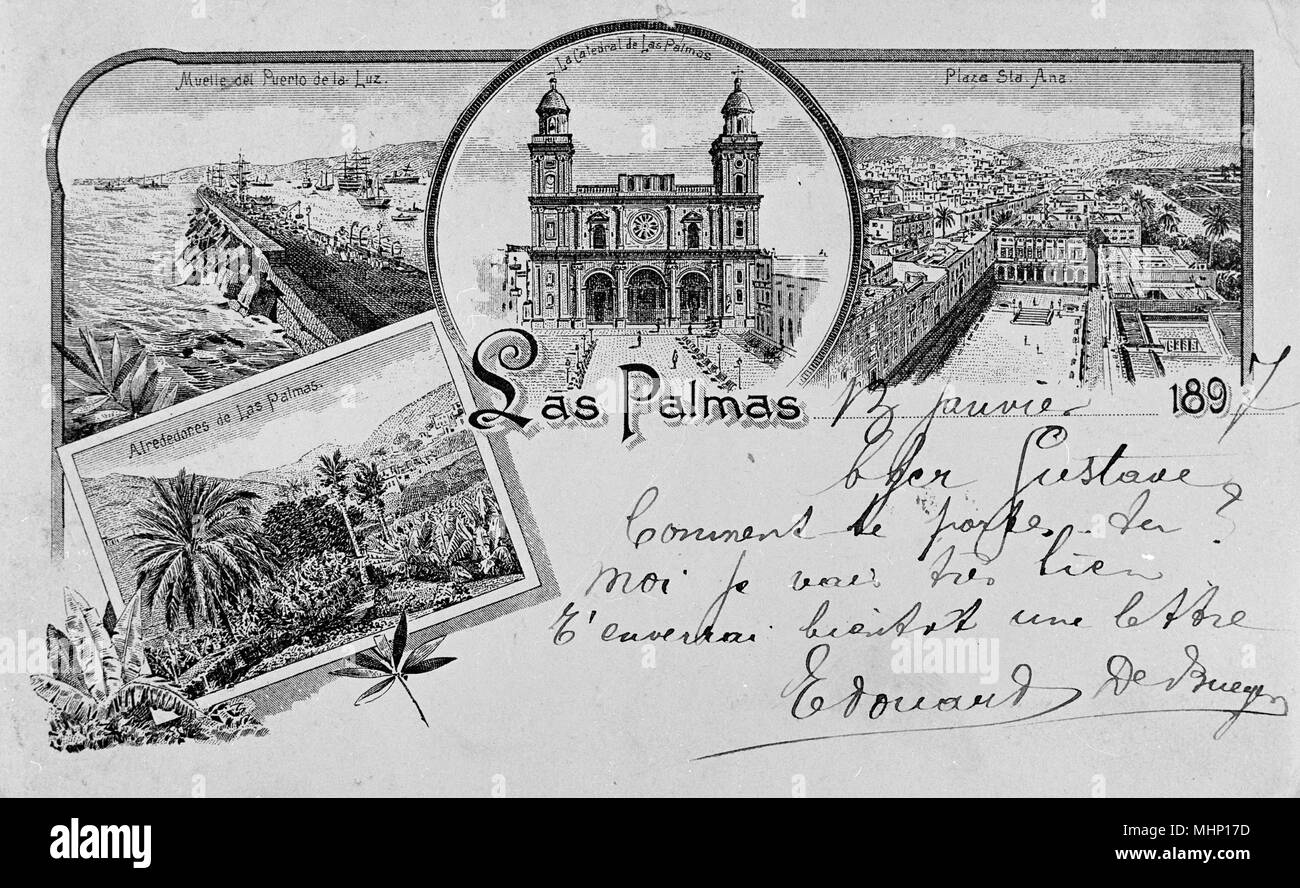 Muelle del Puerto de la Luz.
La Catedral de Las Palmas
Plaza Sta. Ana.
Alrededores de Las Palmas.
Las Palmas 13 Janvier 1897
Cher Gustave,
Comment te portes-tu?
Moi je vais très bien
T'enverrai bientot une lettre
Edouard De
alamy
Image ID: MHP17D
www.alamy.com